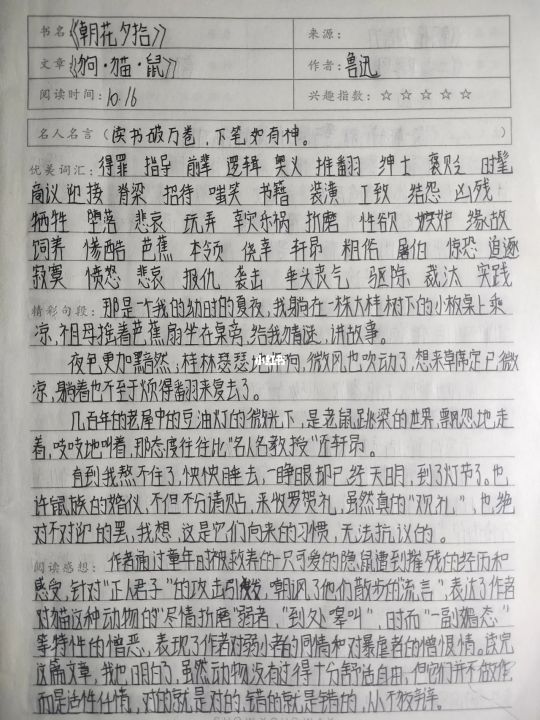 书名:《朝花夕拾》 来源:
文章:《狗·猫·鼠》 作者:鲁迅
阅读时间:10.16 兴趣指数:☆☆☆☆☆
名人名言(读书破万卷,下笔如有神。)
优美词汇:得罪 指导 前辈 逻辑 奥义 推翻 绅士 褒贬 时髦
商议 迎接 脊梁 招待 嗤笑 书籍 装潢 工致 结怨 凶残
牺牲 堕落 悲哀 玩弄 幸灾乐祸 折磨 性欲 嫉妒 缘故
饲养 惨酷 芭蕉 本领 侥幸 轩昂 粗俗 屠伯 惊恐 追逐
寂寞 愤怒 悲哀 报仇 袭击 垂头丧气 驱除 裁汰 实践
精彩句段:那是一个我的幼时的夏夜,我躺在一株大桂树下的小板桌上乘
凉,祖母摇着芭蕉扇坐在桌旁,给我猜谜,讲故事。
夜色更加黯然;桂林瑟瑟地作响,微风也吹动了,想来草席定已微
凉,躺着也不至于烦得翻来复去了。
几百年的老屋中的豆油灯的微光下,是老鼠跳梁的世界,飘忽地走
着,吱吱地叫着,那态度往往比“名人名教授”还轩昂。
直到我熬不住了,怏怏睡去,一睁眼却已经天明,到了灯节了。也
许鼠族的婚仪,不但不分请贴,来收罗贺礼,虽然真的“观礼”,也绝
对不欢迎的罢,我想,这是它们向来的习惯,无法抗议的。
阅读感想:作者通过童年时被救养的一只可爱的隐鼠遭到摧残的经历和
感受,针对“正人君子”的攻击引发,嘲讽了他们散步的“流言”,表达了作者
对猫这种动物的“尽情折磨”弱者,“到处嗥叫”,时而“一副媚态”
等特性的憎恶,表现了作者对弱小者的同情和对暴虐者的憎恨情。读完
这篇文章,我也明白了,虽然动物没有过得十分舒适自由,但它们并不做作
而是适性任情,对的就是对的,错的就是错的,从不放弃。
小红书